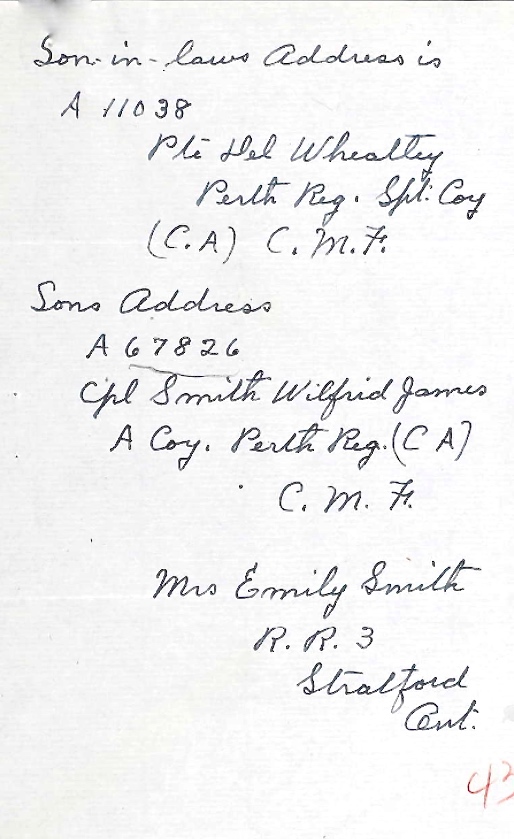 Son-in-laws Address is
A 11038
Pte Del Wheatley
Perth Reg. Spt. Coy
(C.A) C.M.F.
Sons Address
A 67826
Cpl Smith Wilfrid James
A Coy. Perth Reg. (C A)
C. M. F.
Mrs Emily Smith
R. R. 3
Stratford
Ont.
43